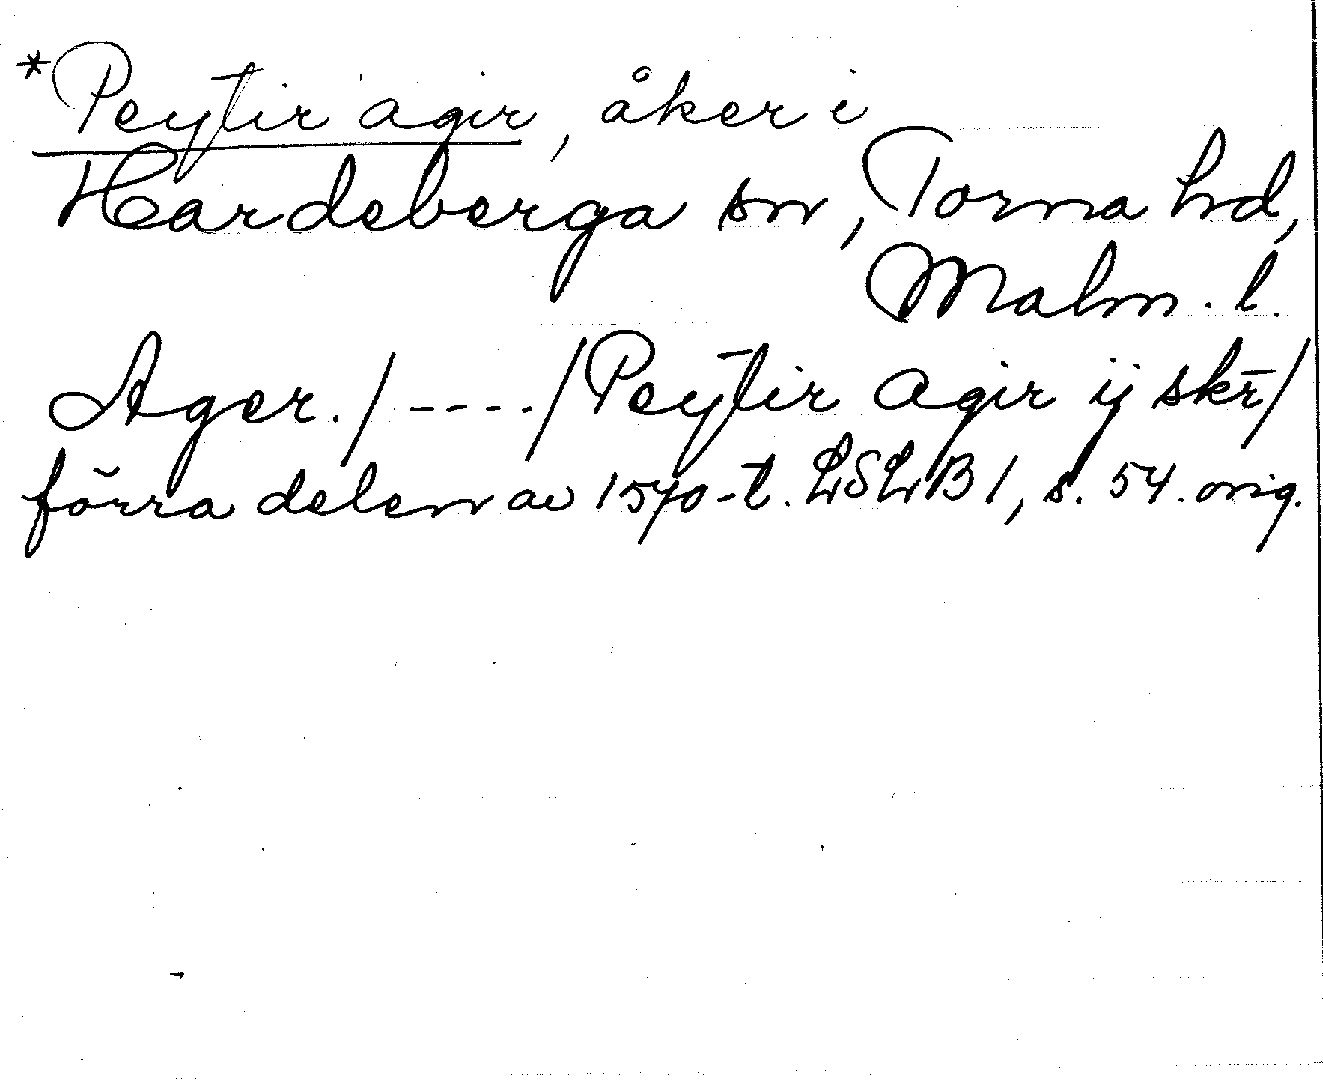 *Peytir agir, åker i
Hardeberga sn, Torna hd,
Malm. l.
Ager. / ---- / Peytir agir ij skr̄ /
förra delen av 1570-t. LSLB 1, s. 54. orig.